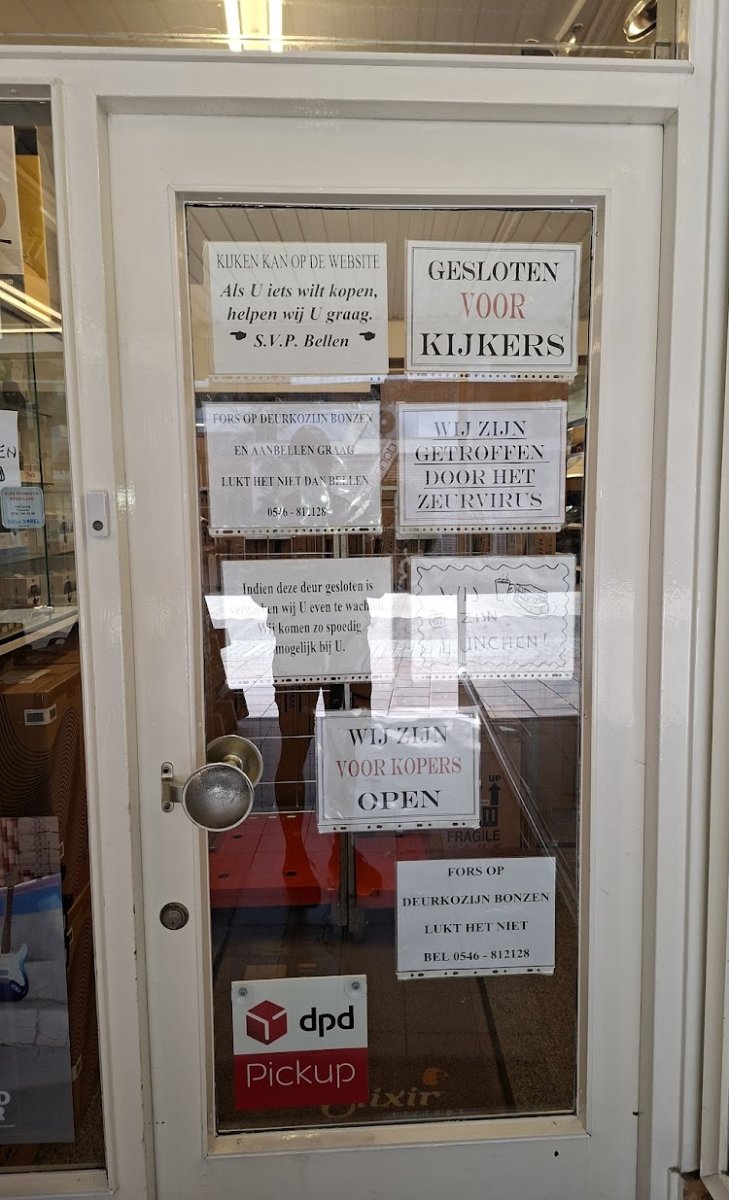 KIJKEN KAN OP DE WEBSITE
Als U iets wilt kopen,
helpen wij U graag.
S.V.P. Bellen
GESLOTEN
VOOR
KIJKERS
FORS OP DEURKOZIJN BONZEN
EN AANBELLEN GRAAG
LUKT HET NIET DAN BELLEN
0546 - 812128
WIJ ZIJN
GETROFFEN
DOOR HET
ZEURVIRUS
Indien deze deur gesloten is
wij U even te
Wij komen zo spoedig
mogelijk bij U.
WIJ
ZIJN
LUNCHEN!
WIJ ZIJN
VOOR KOPERS
OPEN
UP
FRAGILE
FORS OP
DEURKOZIJN BONZEN
LUKT HET NIET
BEL 0546 - 812128
dpd
Pickup
Elixir